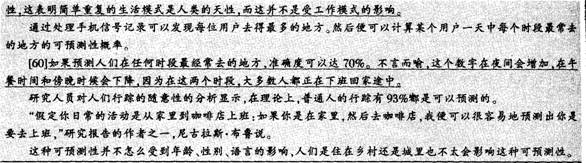 性,这表明简单重复的生活模式是人类的天性,而这并不是受工作模式的影响。
通过处理手机信号记录可以发现每位用户去得最多的地方。然后便可以计算某个用户一天中每个时段最常去
的地方的可预测性概率。
[60]如果预测人们在任何时段最经常去的地方,准确度可以达 70%。不言而喻,这个数字在夜间会增加,在午
餐时间和傍晚时候会下降,因为在这两个时段,大多数人都正在下班回家途中。
研究人员对人们行踪的随意性的分析显示,在理论上,普通人的行踪有93%都是可以预测的。
“假定你日常的活动是从家里到咖啡店上班;如果你是在家里,然后去咖啡店,我便可以很容易地预测出你是
要去上班,”研究报告的作者之一,尼古拉斯·布鲁说。
这种可预测性并不怎么受到年龄、性别、语言的影响,人们是住在乡村还是城里也不太会影响这种可预测性。